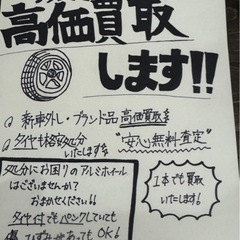 高価買取
します!!
新車外し・ブランド品高価買取
タイヤも格安処分
いたします
"安心無料査定"
処分にお困りのアルミホイール
はございませんか?
おまかせください!!
タイヤ付でもパンクしていても
傷 ひずみがあってもOK!
1本でも買取
いたします!